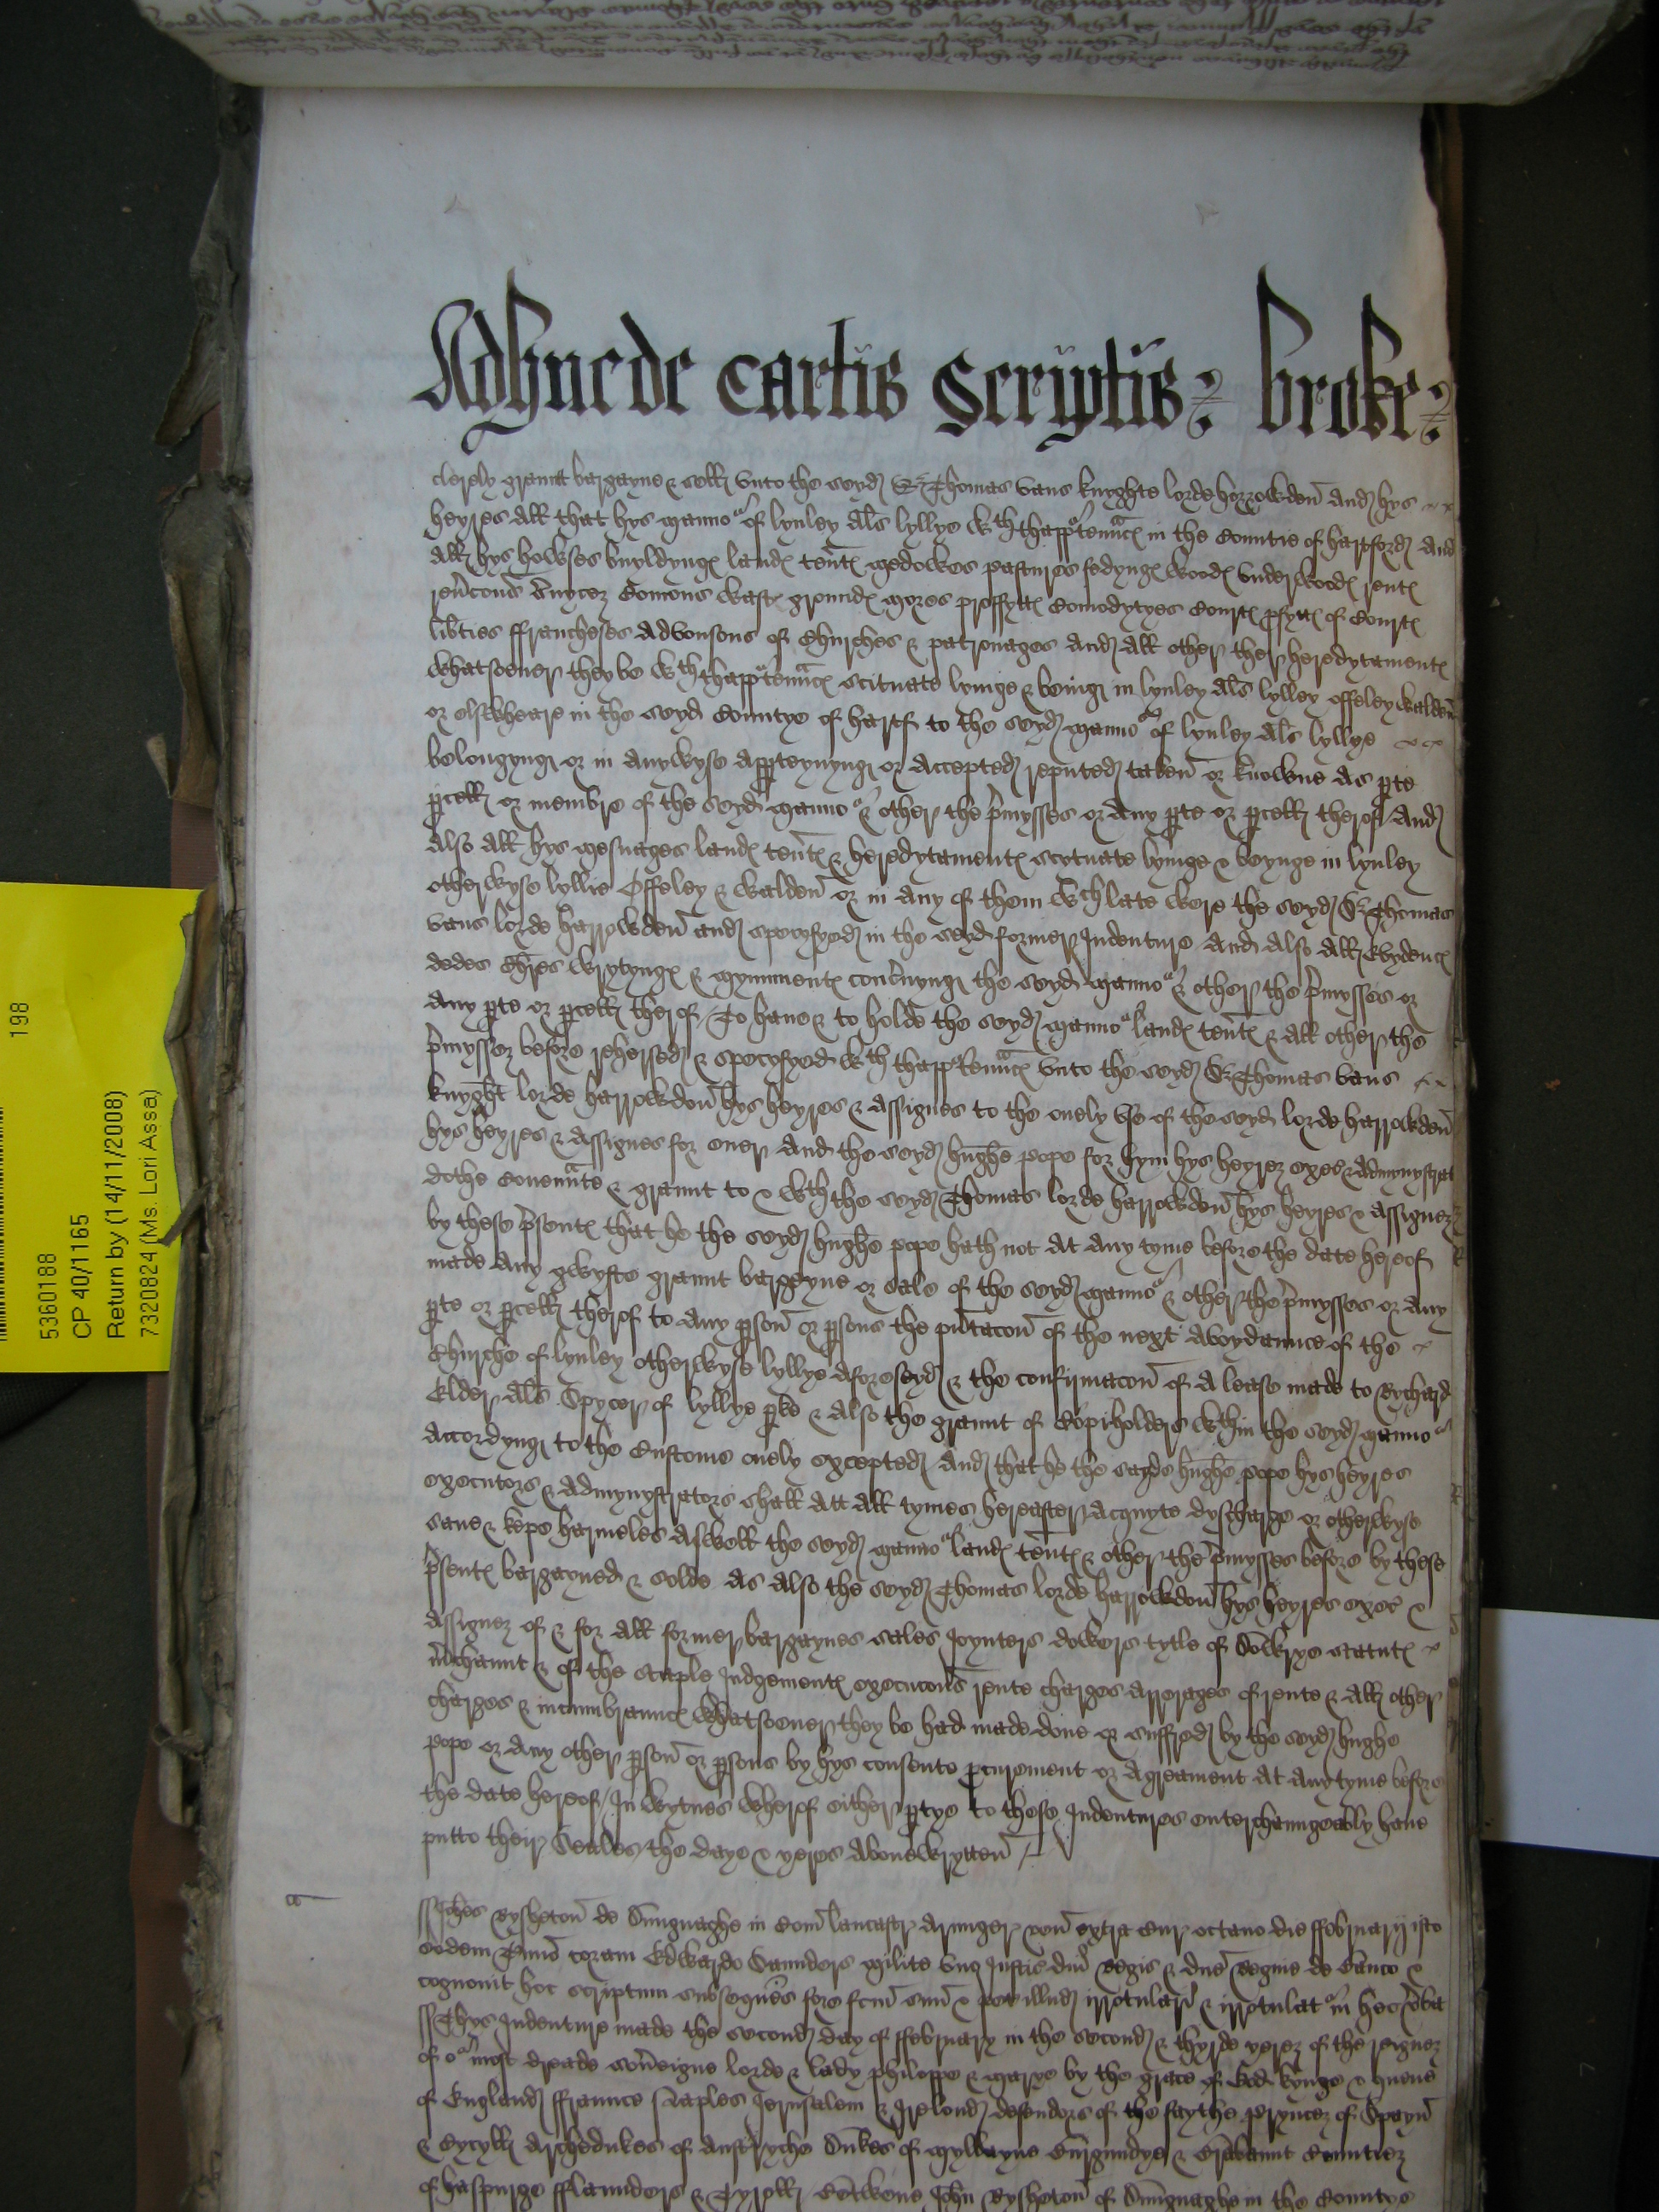 Adhuc de cartis Scriptis broke
clerely graunt bargayne & sell unto the seyd Sr Thomas Vaus knyghte lorde horrowden and hys
heyres all that hys manno^r of lynley als lyllye wth thapp^rtenncs in the Countie of hartford And
all hys howses buyldyngs lands tents medowes pastures fedyngs woods underwoods rents
revercons s'vycez Comons waste grounds mores proffytts Comodytyes Courts pfytts of Courts
lib'ties ffrancheses Advousons of Churches & patronages and all other ther heredytaments
whatsoever they be wth thapp^rtenncs scituate lyinge & being in lynley als lylley offeley walden
or elswheare in the seyd Countye of hartf to the seyd manno^r of lynley als lyllye
belongyng or in anywyse apperteynyng or accepted reputed taken or knowne as pte
pcell or membre of the seyd manno^r & other the p'mysses or any pte or pcell therof And
Also all hys mesuages lands tents & heredytaments scytuate lyinge & beynge in lynley
otherwyse lyllie Offeley & walden or in any of them wch late were the seyd Sr Thomas
vaus lorde harrowden and specyfyed in the seyd former Indenture And also all Evydencs
dedes Chres wrytyngs & mynyments conc'nyng the seyd manno^r & other the p'mysses or
any pte or pcell therof To have & to holde the seyd manno^r lands tents & all other the
p'myssez before rehersed & specyfyed wth thapp^rtenncs unto the seyd Sr Thomas vaus
knyght lorde harrowden hys heyres & assignes to the onely use of the seyd lorde harrowden
hys heyres & assignes for ever And the seyd hughe pope for hym hys heyrez exec & admynystrat
dothe Covennte & graunt to & wth the seyd Thomas lorde harrowden hys heyres & assignez
by these p'sents that he the seyd hughe pope hath not at any tyme before the date hereof
made any gwyfte graunt bargeyne or sale of the seyd manno^r & other the p'mysses or any
pte or pcell therof to any pson or psons the p'ntacon of the next avoydaunce of the
Churche of lynley otherwyse lyllye aforeseyd & the confirmacon of a lease made to Rychard
Elder als Spycer of lyllye pke & also the graunt of Copiholders wthin the seyd manno^r
accordyng to the Custome onely excepted And that he the sayde hughe pope hys heyres
executors & admynystrators shall att all tymes hereafter acquyte dyscharge or otherwyse
save & kepe harmeles aswell the seyd manno^r lands tents & other the p'mysses before by these
p'sents bargayned & solde As also the seyd Thomas lorde harrowden hys heyres exec &
assignez of & for all former bargaynes sales Joynters dowers tytle of Dowrye statuts
m'chaunt & of the staple Judgements execucons rente charges arrerages of rente & all other
charges & incumbrauncs whatsoever they be had made done or suffred by the seyd hughe
pope or any other pson or psons by hys consente pcurement or agreament at any tyme before
the date hereof / In wytnes wherof either ptye to these Indentures enterchaungeably have
putto their Seales the daye & yeres abovewrytten
ss Johes Rysheton de Dunguaghe in Com lancastr Armiger ven extra Cur octavo die ffebruarij isto
eodem Tmino coram Edwardo Saunders milite uno Justic dni Regis & dne Regine de Banco &
cognovit hoc scriptum subsequens fore fcm suu & pet illud irrotulari & irrotulat^r in hec verba
ss Thys Indenture made the second day of ffebruary in the second & thyrde yerez of the reignez
of o^r most dreade sov'eigne lorde & lady Philippe & Marye by the grace of God kynge & quene
of England ffraunce Naples Jerusalem & Irelond defendors of the faythe Pryncez of Spayn
& Cycyll Archedukes of Austryche Dukes of Myllayne Burgundye & Brabaunt Countiez
of haspurge fflaunders & Tyroll Betwene John Rysheton of Dunguaghe in the Countye
198
5360188
CP 40/1165
Return by (14/11/2008)
7320824 (Ms. Lori Assa)